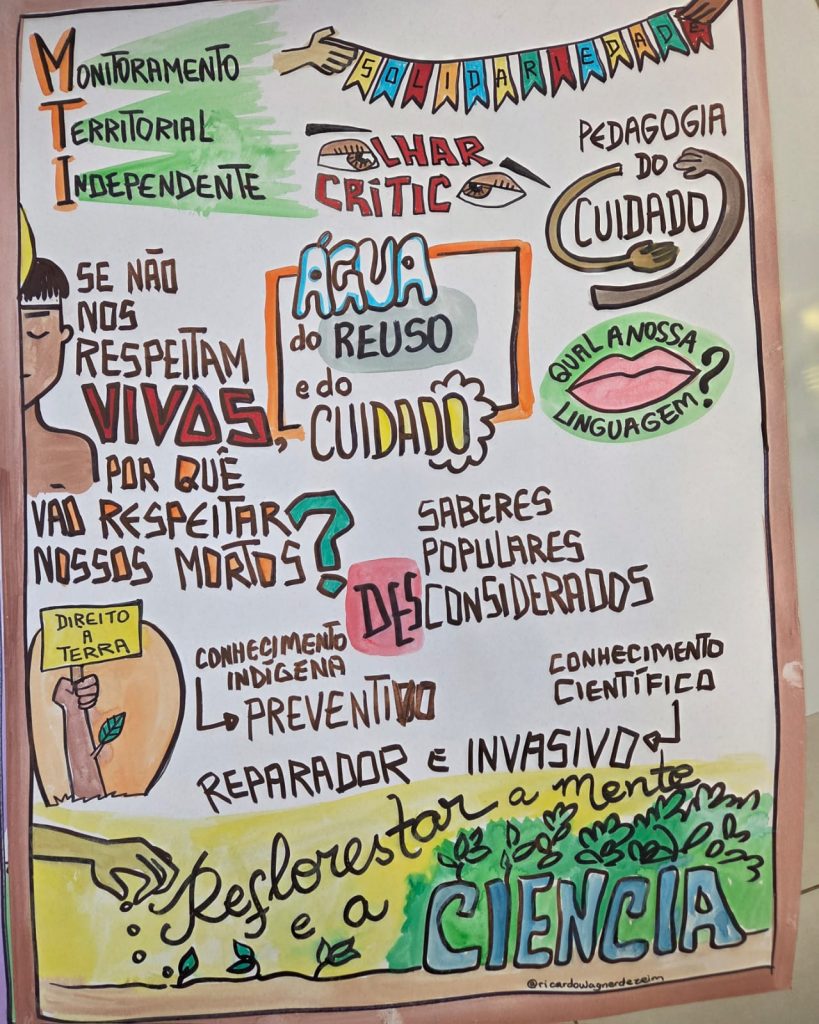 MONITORAMENTO
TERRITORIAL
INDEPENDENTE
SOLIDARIEDADE
OLHAR
CRÍTICO
PEDAGOGIA
DO
CUIDADO
SE NÃO
NOS
RESPEITAM
VIVOS,
POR QUÊ
VAO RESPEITAR
NOSSOS MORTOS?
ÁGUA
do REUSO
e do
CUIDADO
QUAL A NOSSA
LINGUAGEM?
SABERES
POPULARES
DESCONSIDERADOS
DIREITO
A
TERRA
CONHECIMENTO
INDÍGENA
PREVENTIVO
CONHECIMENTO
CIENTÍFICO
REPARADOR E INVASIVO
Reflorestar a mente
e a CIÊNCIA
@ricardowagnerdezeim